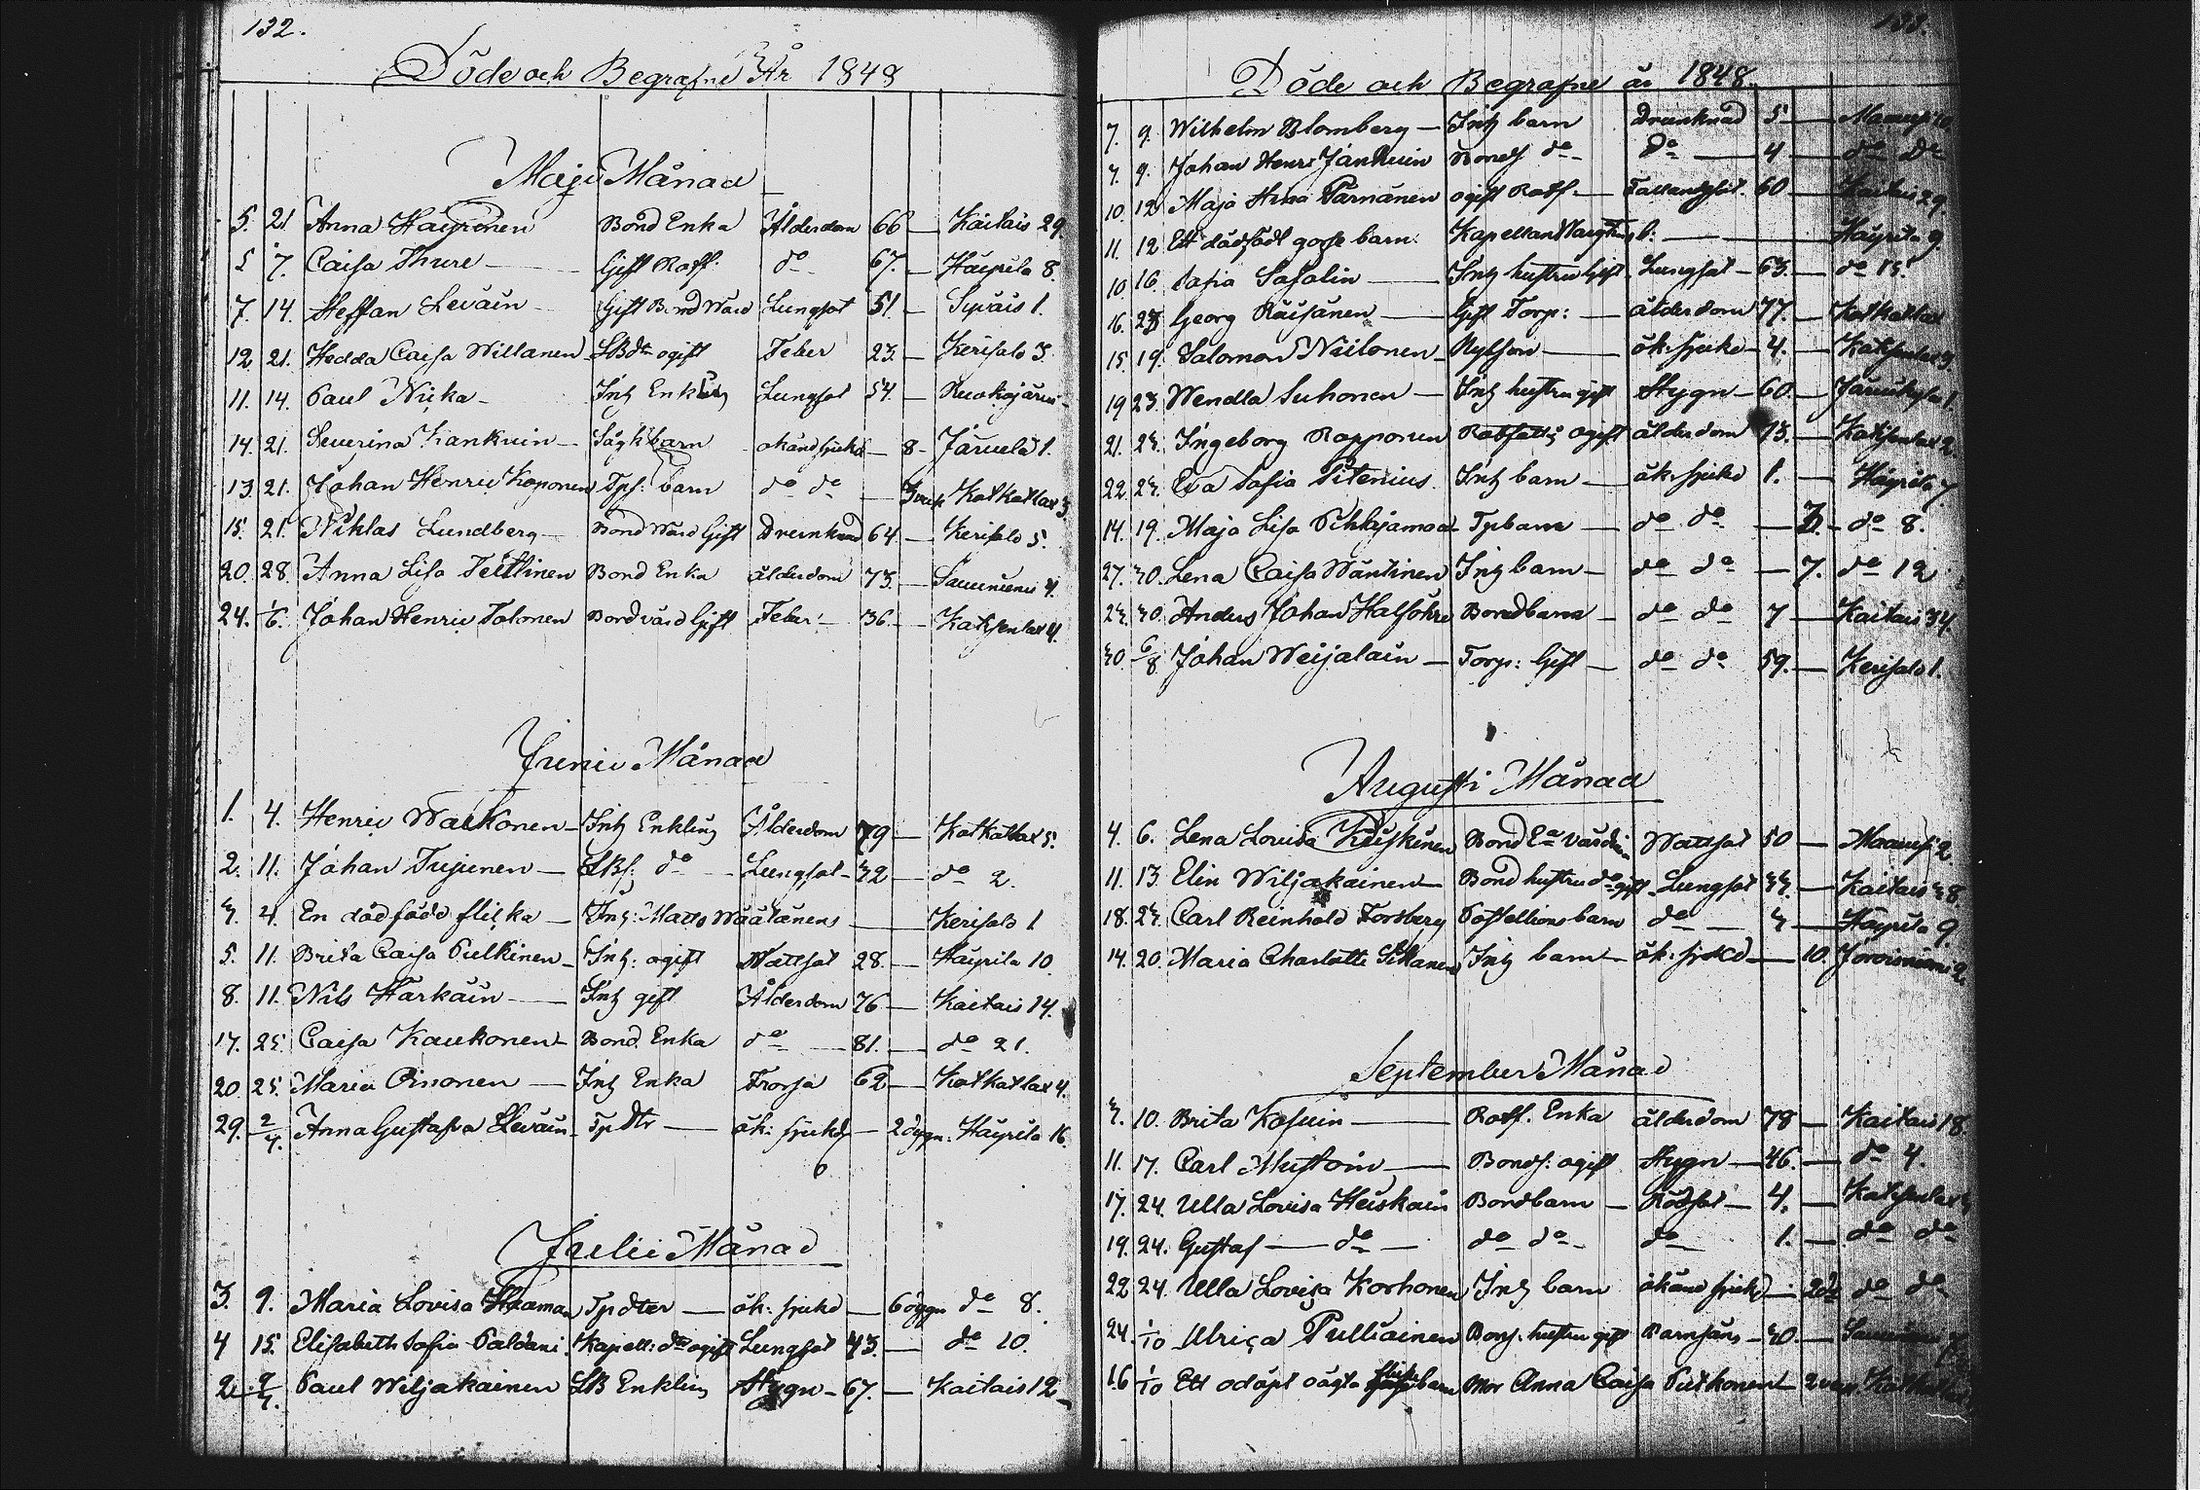 132.
Döde och Begrafne År 1848
Maji Månad
5. 21 Anna Häyrönen Bond Enka Ålderdom 66 — Kaitais 29
5 7. Caisa Thure — Gift Rotf: do 67. — Häyrilä 8.
7. 14. Steffan Leväin Gift Bond Wärd Lungsot 51. — Syväis 1.
12. 21. Hedda Caisa Willanen ogift Feber 23. — Kerisalo 3.
11. 14. Paul Nicka — Inh Enkling Lungsot 54. — Ruokojärvi
14. 21. Severina Kankuin — barn okänd sjukd — 8 — Järvelä 1.
13. 21. Johan Henric Koponen Tps: barn do do — Kotkatlax 3.
15. 21. Niklas Lundberg — Bond Wärd Gift Drunknad 64 — Kerisalo 5.
20. 28. Anna Lisa Teittinen Bond Enka ålderdom 73. — 4.
24. 1/6. Johan Henric Tolonen Bond värd Gift Feber — 36. — Kaksenlax 4.
Junii Månad
1. 4. Henric Waikonen — Inh Enkling Ålderdom 79 — Kotkatlax 5.
2. 11. Johan Tujunen — do Lungsot — 32 — do 2.
3. 4. En dödfödd flicka — Inh: Matts Wäätänens — Kerisalo 1
5. 11. Brita Caisa Pulkinen — Inh: ogift Wattsot 28. — Häyrilä 10.
8. 11. Nils Härkäin — Inh gift Ålderdom 76 — Kaitais 14.
17. 25. Caisa Kaukonen — Bond Enka do — 81. — do 21.
20. 25. Maria Oinonen — Inh Enka Frossa 62 — Kotkatlax 4.
29. 2/7. Anna Gustafva Leväin — Tpdtr — ok: sjukd — 2 dygn. Häyrilä 16
Julii Månad
3. 9. Maria Lovisa Tpdter — ok: sjukd — 6 dygn do 8.
4 15. Elisabeth Sofia Paldani Kapell: dtr ogift Lungsot 43. — do 10.
2. 9/7. Paul Wiljakainen LB Enkling Stygn — 67. — Kaitais 12
133.
Döde och Begrafne år 1848.
7. 9. Wilhelm Blomberg — Inh barn Drunknad 5 —
7. 9. Johan Henr: Jankuin Bonds do do — 4 — do do
10. 12 Maja Stina Pärnänen ogift Rotf. — 60 — Kaitais 29.
11. 12 Ett dödfödt gosse barn. Kapellan — Häyrilä 9.
10. 16. Sofia Safalin — Inh hustru gift Lungsot — 63. — do 15.
16. 23 Georg Räisänen — Gift Torp: — ålderdom 77. — Kotkatlax
15. 19. Salomon Niilonen — — ok: sjukd — 4. — Kaksenlax 3.
19 23. Wendla Suhonen — Inh hustru gift Stygn — 60. — Järvikylä 1.
21. 23. Ingeborg Rapponen ogift ålderdom 73. — Kaksenlax 2
22. 23. Eva Sofia Titenius Inh barn — ok. sjukd 1. — Häyrilä 7
14. 19. Maja Lisa Pihlajamaa Tpbarn — do do — 3. — do 8.
27. 30. Lena Caisa Wäntinen Inh barn — do do — 7. do 12
23. 30. Anders Johan Bondbarn — do do 7 — Kaitais 34.
30 6/8 Johan Weijalain — Torp: Gift — do do 59. — Kerisalo 1.
Augusti Månad
4. 6. Lena Lovisa Bond Wattsot 50 — 2
11. 13. Elin Wiljakainen — Bond hustru gift Lungsot 33. — Kaitais 38.
18. 23. Carl Reinhold Forsberg Postillions barn do — 3 — Häyrilä 9.
14. 20. Maria Charlotta Sikanen Inh barn — ok: sjukd — 10. 2.
September Månad
3. 10. Brita Kosuin — Rotf. Enka ålderdom 78 — Kaitais 18.
11. 17. Carl Mustoin — Bonds: ogift Stygn — 46. — do 4.
17. 24. Ulla Lovisa Heiskain Bondbarn — Rödsot — 4. — Kaksenlax
19. 24. Gustaf — do — do do — do 1. — do do
22 24. Ulla Lovisa Korhonen Inh barn okänd sjukd — do do
24. 1/10 Ulrica Pulliainen hustru gift Barnsäng — 30. —
16 1/10 Ett odöpt oägta barn Mor Anna Caisa Putkonen —